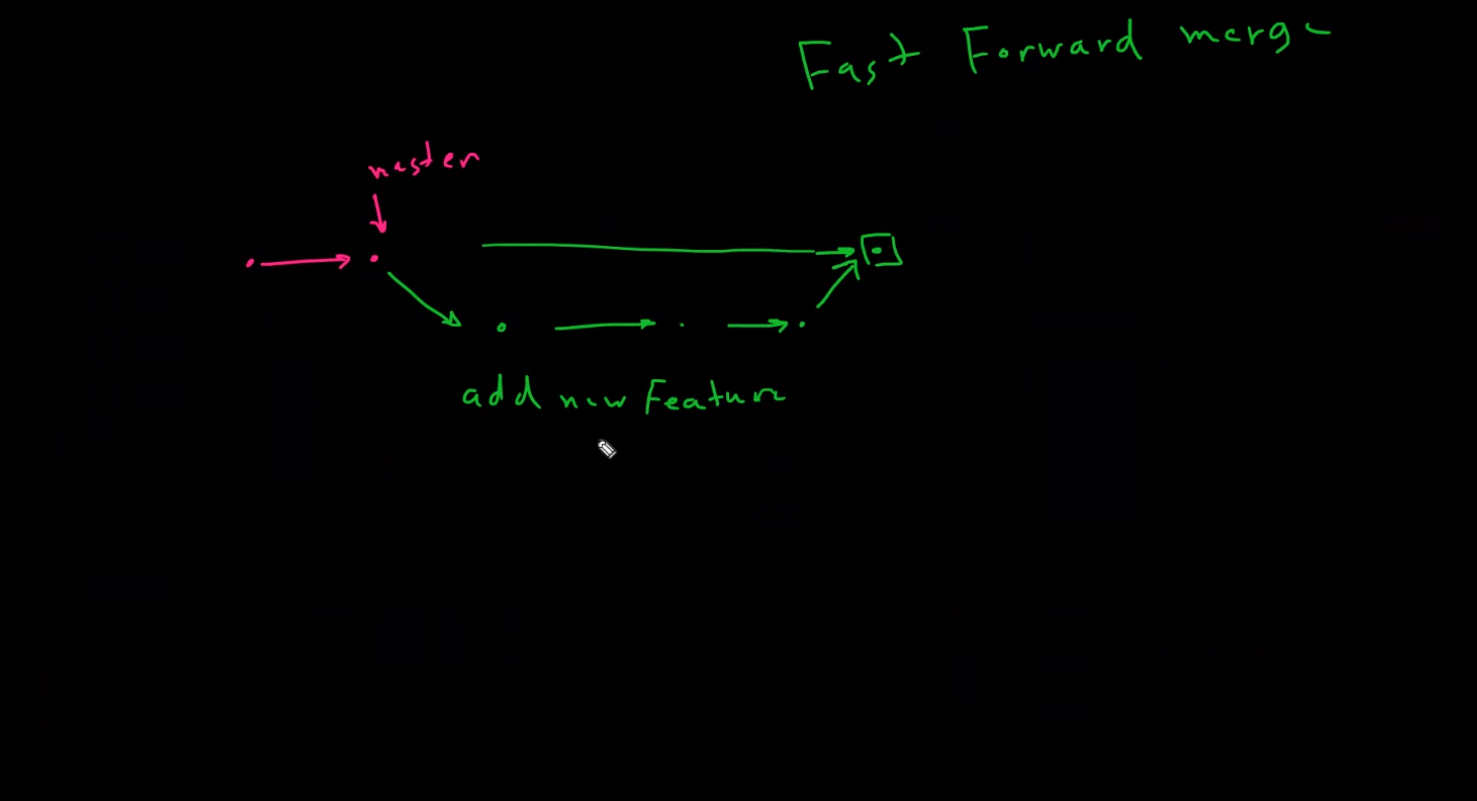 Fast Forward merge
master
add new Feature